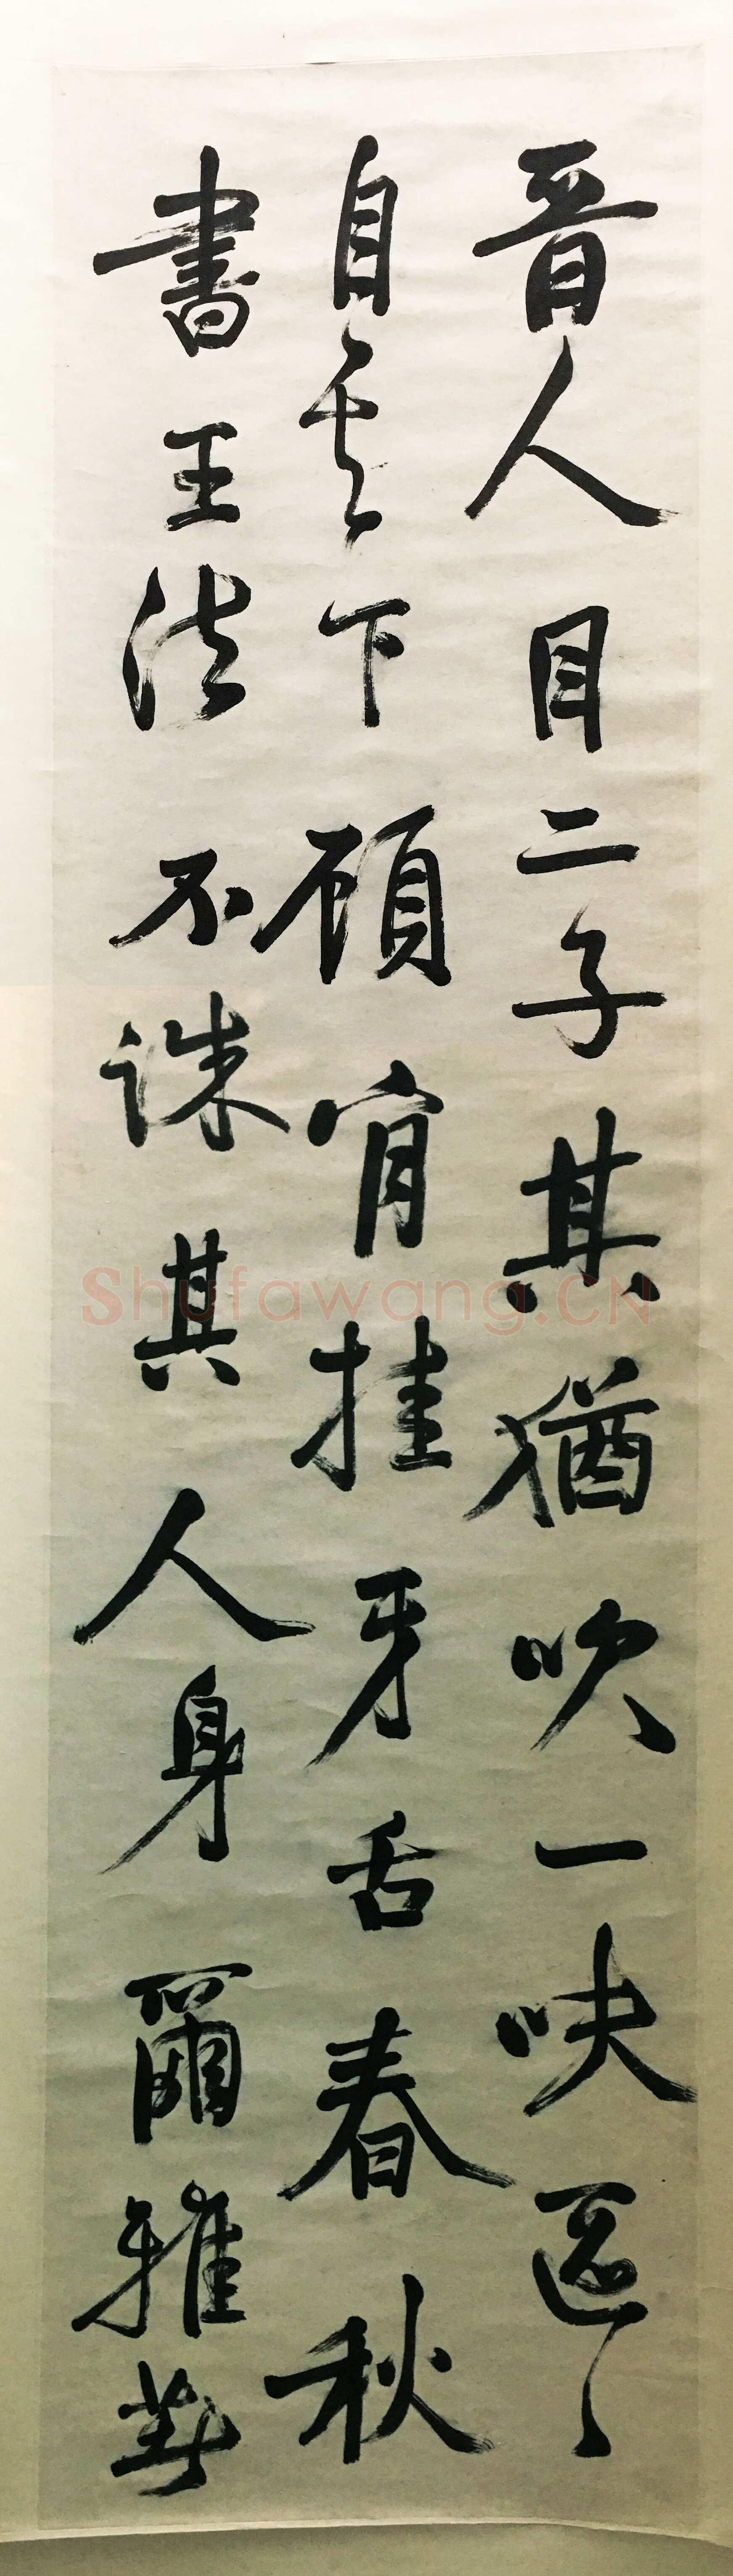 晋人目二子其猶吹一吷區〻
自其下顧肯挂牙舌春秋
書王法不誅其人身爾雅
Shufawang.CN